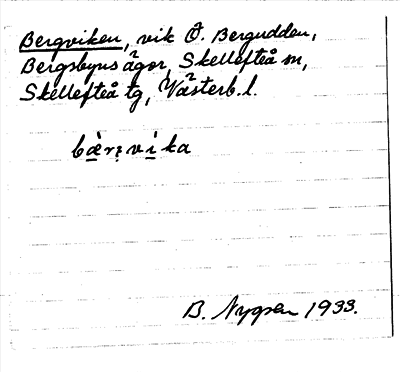 Bergviken, vik Ö. Bergudden,
Bergsbyns ägor, Skellefteå sn,
Skellefteå tg, Västerb. l.
bæ̀rị vi̱ ka
B. Nygren 1933.